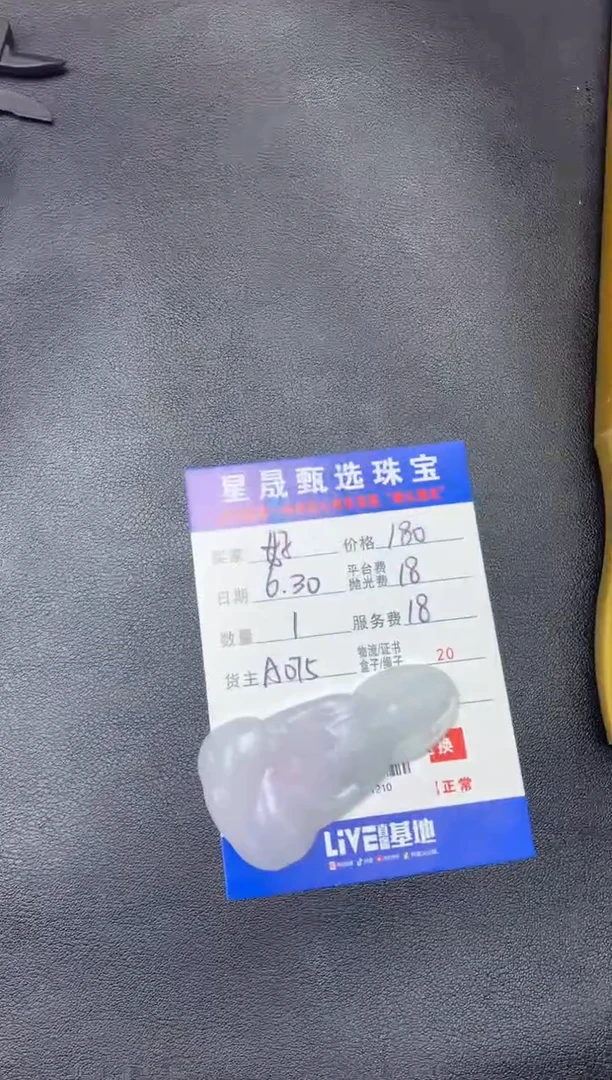 星晟甄选珠宝
买家 好 价格 180
日期 6.30 平台费 抛光费 18
数量 1 服务费 18
货主 A075 物流/证书 盒子/绳子 20
换
210 正常
LiVE直播基地